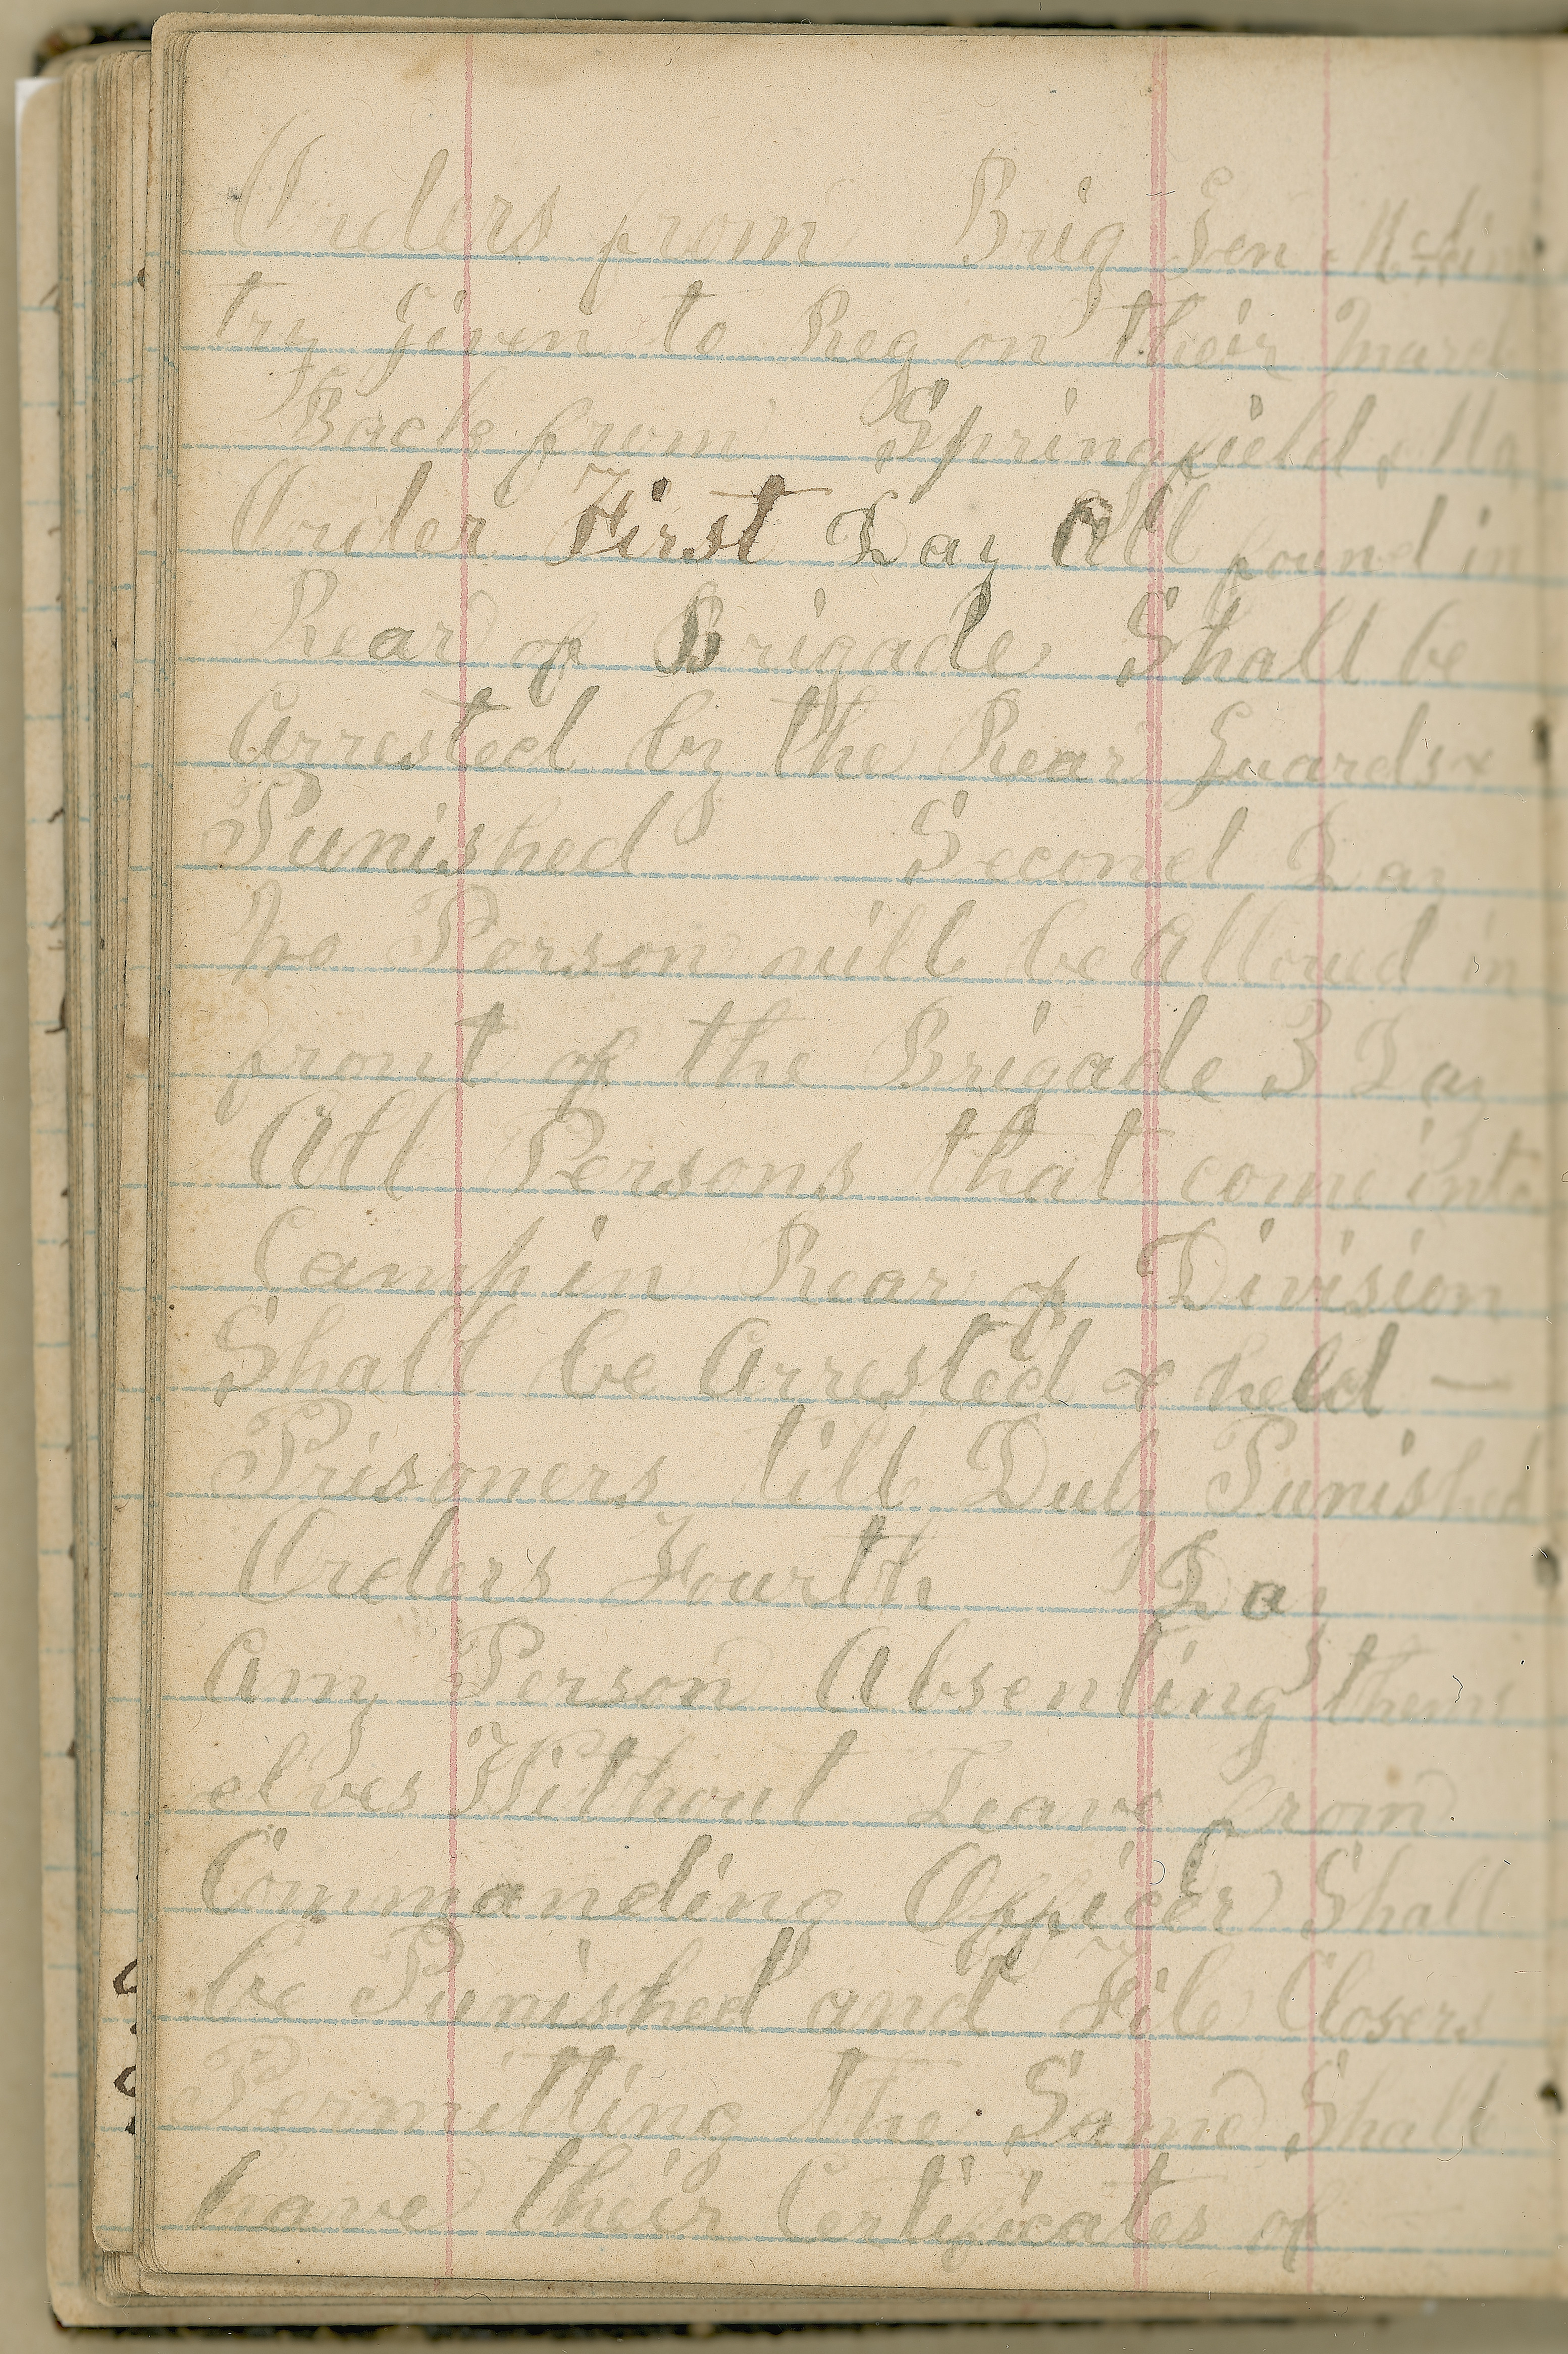 Orders from Brig Gen
try given to Reg on their March
Back from Springfield, Mo
Order First Day All found in
Rear of Brigade Shall be
Arrested by the Rear Guards &
Punished Second Day
No Person will be Alloud in
front of the Brigade 3 Day
All Persons that come into
Camp in Rear of Division
Shall be Arrested & held —
Prisoners till Duly Punished
Orders Fourth Day
Any Person Absenting thems
elves Without Leave from
Commanding Officer Shall
be Punished and File Closers
Permitting the Same Shall
have their Certificates of